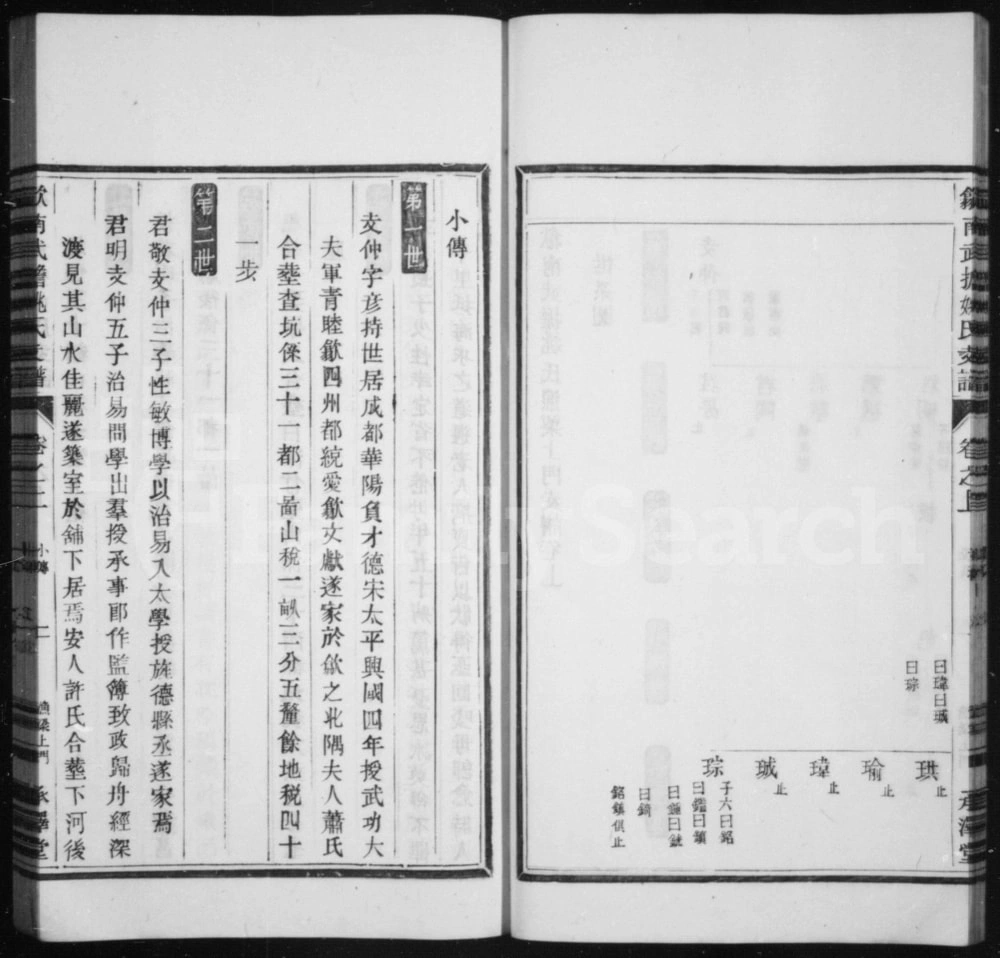 曰瑋曰珹
曰琮
珙止
瑜止
瑋止
珹止
琮子六曰銘
曰鑑曰鎮
曰鐩曰鉞
曰錡
銘鎮俱止
小傳
第一世
攴仲字彦持世居成都華陽負才德宋太平興國四年授武功大
夫軍青睦歙四州都統愛歙文獻遂家於歙之北隅夫人蕭氏
合塟查坑保三十一都二啚山稅一畝三分五釐餘地稅四十
一步
第二世
君敬攴仲三子性敏博學以治易入太學授旌德縣丞遂家焉
君明攴仲五子治易問學出羣授承事郎作監簿致政歸舟經深
渡見其山水佳麗遂築室於舖下居焉安人許氏合塟下河後
卷之二
小傳
漁梁上門
承澤堂
卷之上
LegacySearch